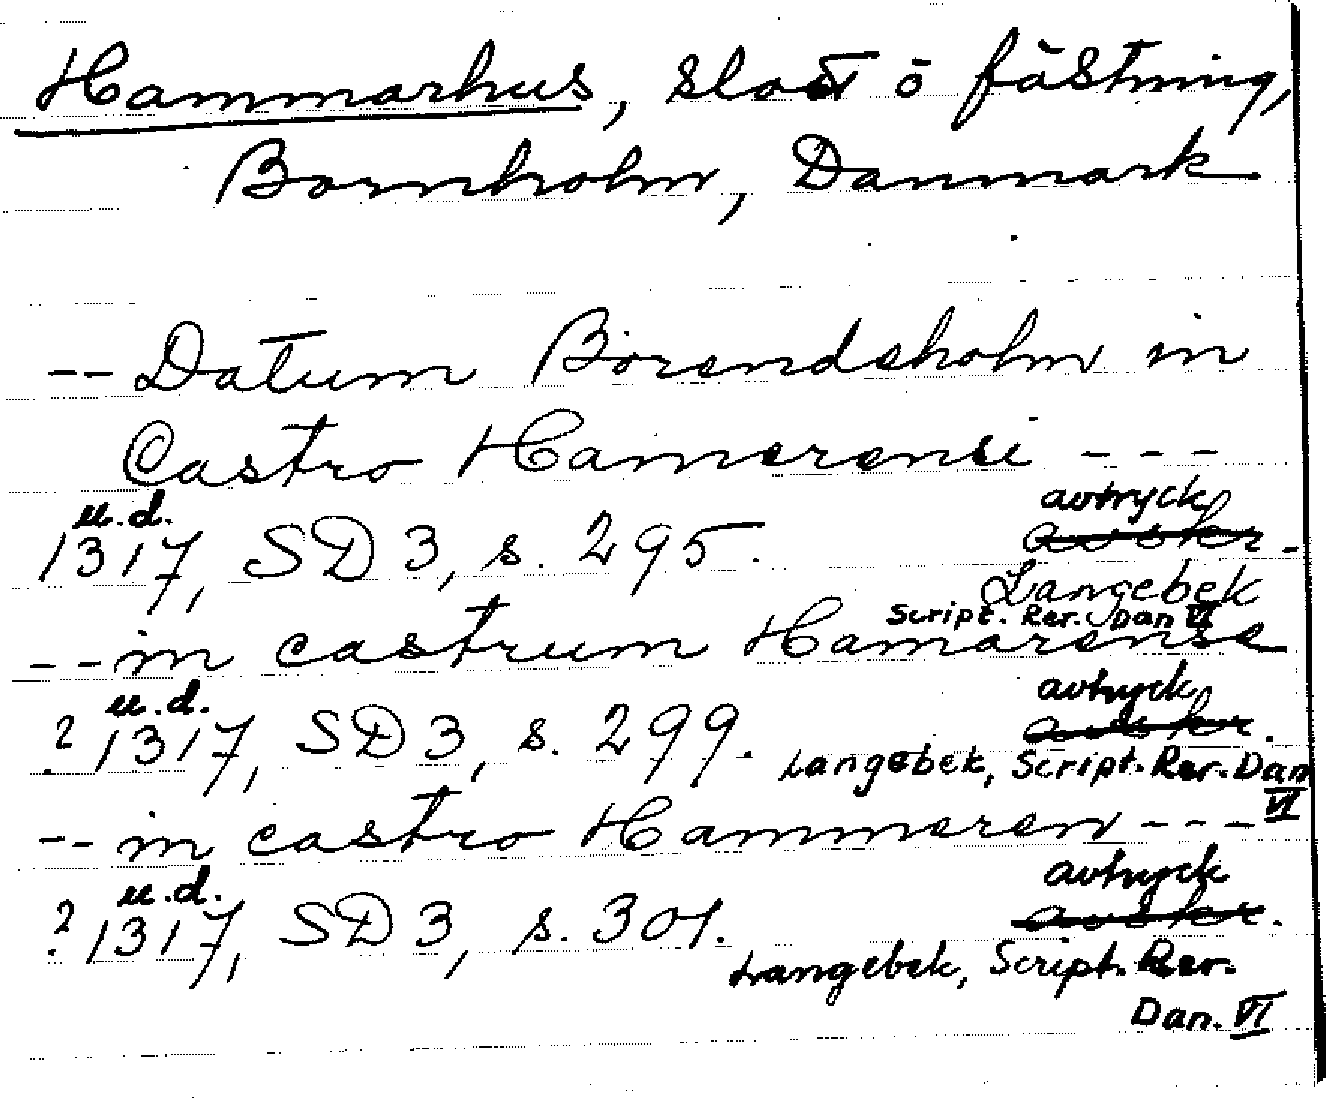 Hammarhus, slott o fästning,
Bornholm, Danmark
-- Datum Börendsholm in
Castro Hamerensi ---
u.d. avtryck
1317, SD 3, s. 295. avskr.
Langebek
Script. Rer. Dan VI
-- in castrum Hamarense
u.d. avtryck
? 1317, SD 3, s. 299. avskr.
Langebek, Script. Rer. Dan
VI
-- in castro Hammeren ---
u.d. avtryck
? 1317, SD 3, s. 301. avskr.
Langebek, Script. Rer.
Dan. VI